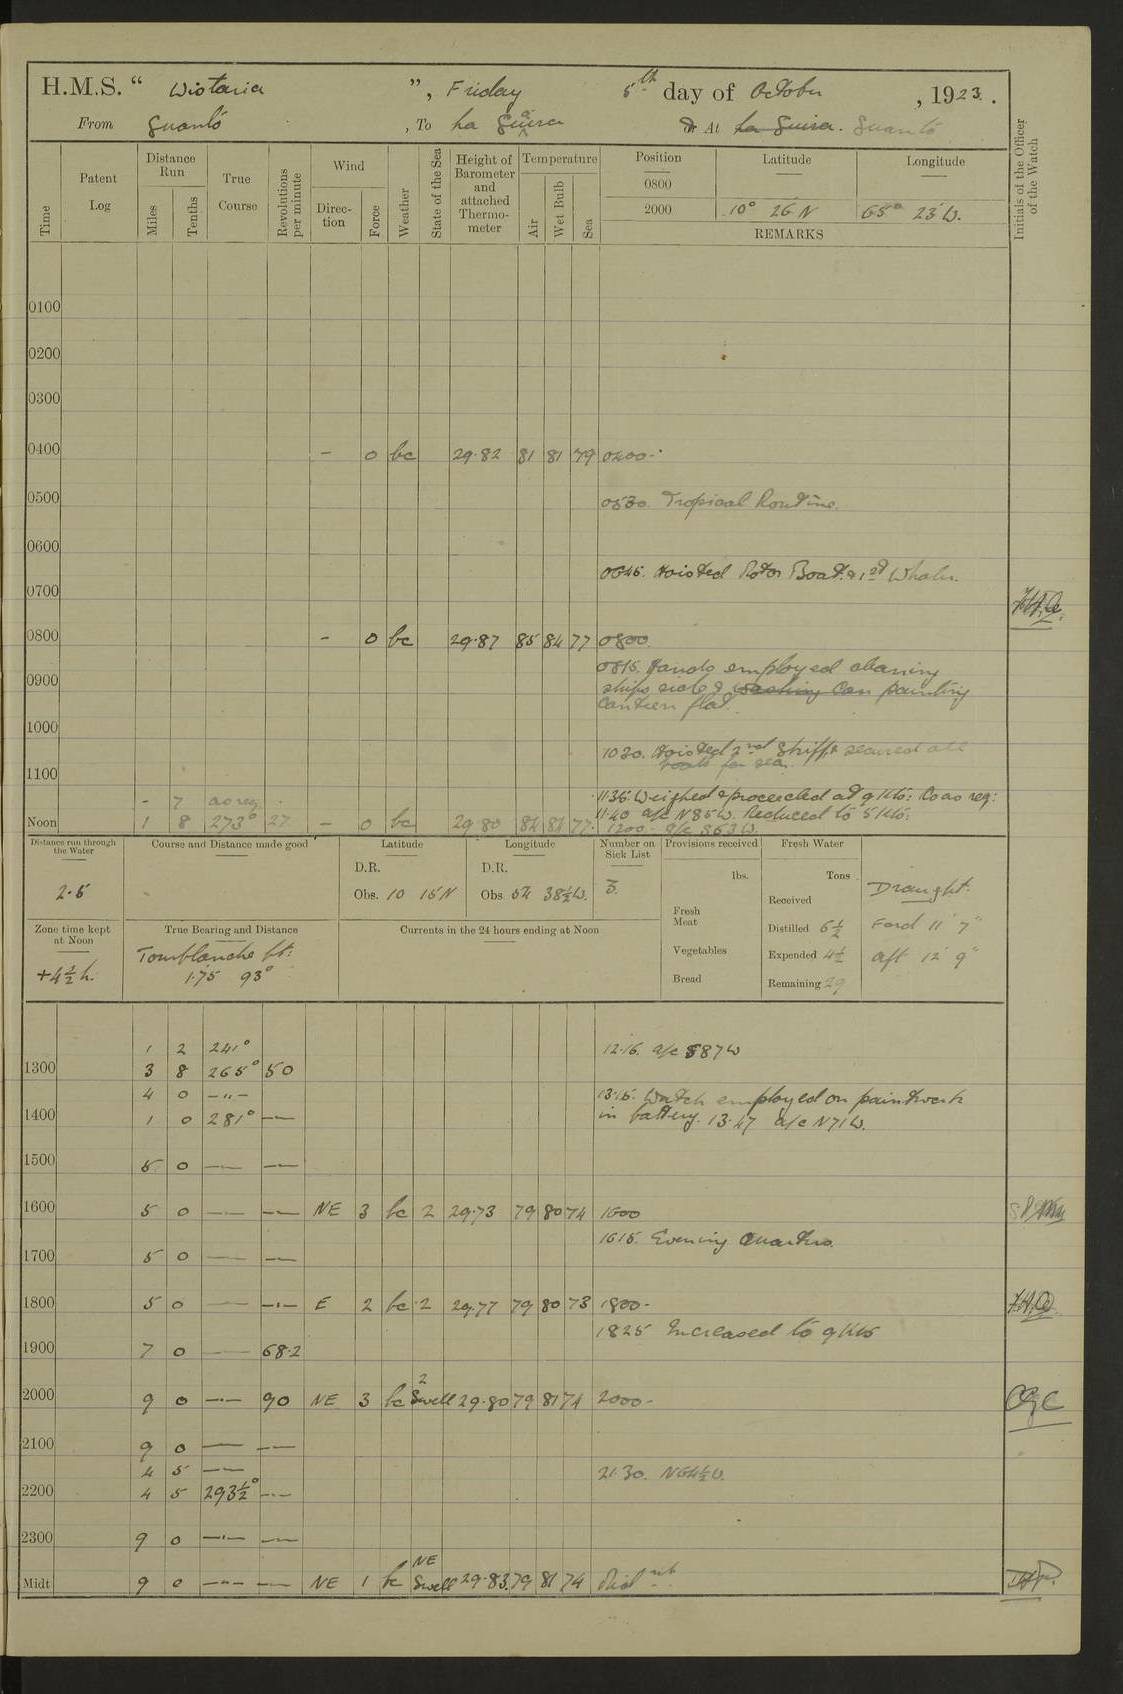 H.M.S. “ Wistaria ”, Friday 5th day of October , 1923.
From Guanto , To La Guira At La Guira. Guanto
Time
Patent Log
Distance Run
Miles
Tenths
True Course
Revolutions per minute
Wind
Direc-tion
Force
Weather
State of the Sea
Height of Barometer and attached Thermo-meter
Temperature
Air
Wet Bulb
Sea
Position Latitude Longitude
0800
2000 10° 26 N 65° 23 W.
REMARKS
Initials of the Officer of the Watch
0100
0200
0300
0400 - 0 bc 29.82 81 81 79 0400-
0500
0530. Tropical Routine.
0600
0645. Hoisted Motor Boat & 1st Whaler.
0700
0800 - 0 bc 29.87 85 84 77 0800
0815. Hands employed cleaning
ships side & washing Can painting
0900
canteen flat.
1000
1030. Hoisted 2nd Skiff & secured all
boats for sea.
1100
- 7 as req. 1135. Weighed & proceeded at 9 Kts: Co as req:
1140 a/c N85W. Reduced to 5 Kts:
Noon 1 8 273° 27 - 0 bc 29.80 84 81 77. 1200- a/c S63W.
Distance run through the Water
2.5
Course and Distance made good
Latitude
D.R.
Obs. 10 15 N
Longitude
D.R.
Obs 64 38½ W.
Number on Sick List
3.
Provisions received
lbs.
Fresh Meat
Vegetables
Bread
Fresh Water
Tons
Received
Distilled 6½
Expended 4½
Remaining 29
Draught.
Ford 11' 7"
aft 12' 9"
Zone time kept at Noon
+4½ h.
True Bearing and Distance
1.75 93°
Currents in the 24 hours ending at Noon
1 2 241° 12.16. a/c S87W
1300 3 8 265° 50
4 0 -"- 13.15. Watch employed on paintwork
1400 1 0 281° — in battery. 13.47 a/c N71W.
1500 5 0 — —
1600 5 0 — — NE 3 bc 2 29.73 79 80 74 1600
1615. Evening Quarters.
1700 5 0 — —
1800 5 0 — — E 2 bc 2 29.77 79 80 73 1800-
1825 Increased to 9 Kts
1900 7 0 — 68.2
2000 9 0 — 90 NE 3 bc 2 Swell 29.80 79 81 74 2000-
2100 9 0 — —
4 5 — 21.30. N64½W.
2200 4 5 293½° —
2300 9 0 — —
Midt 9 0 — — NE 1 bc NE Swell 29.83 79 81 74 Midnt